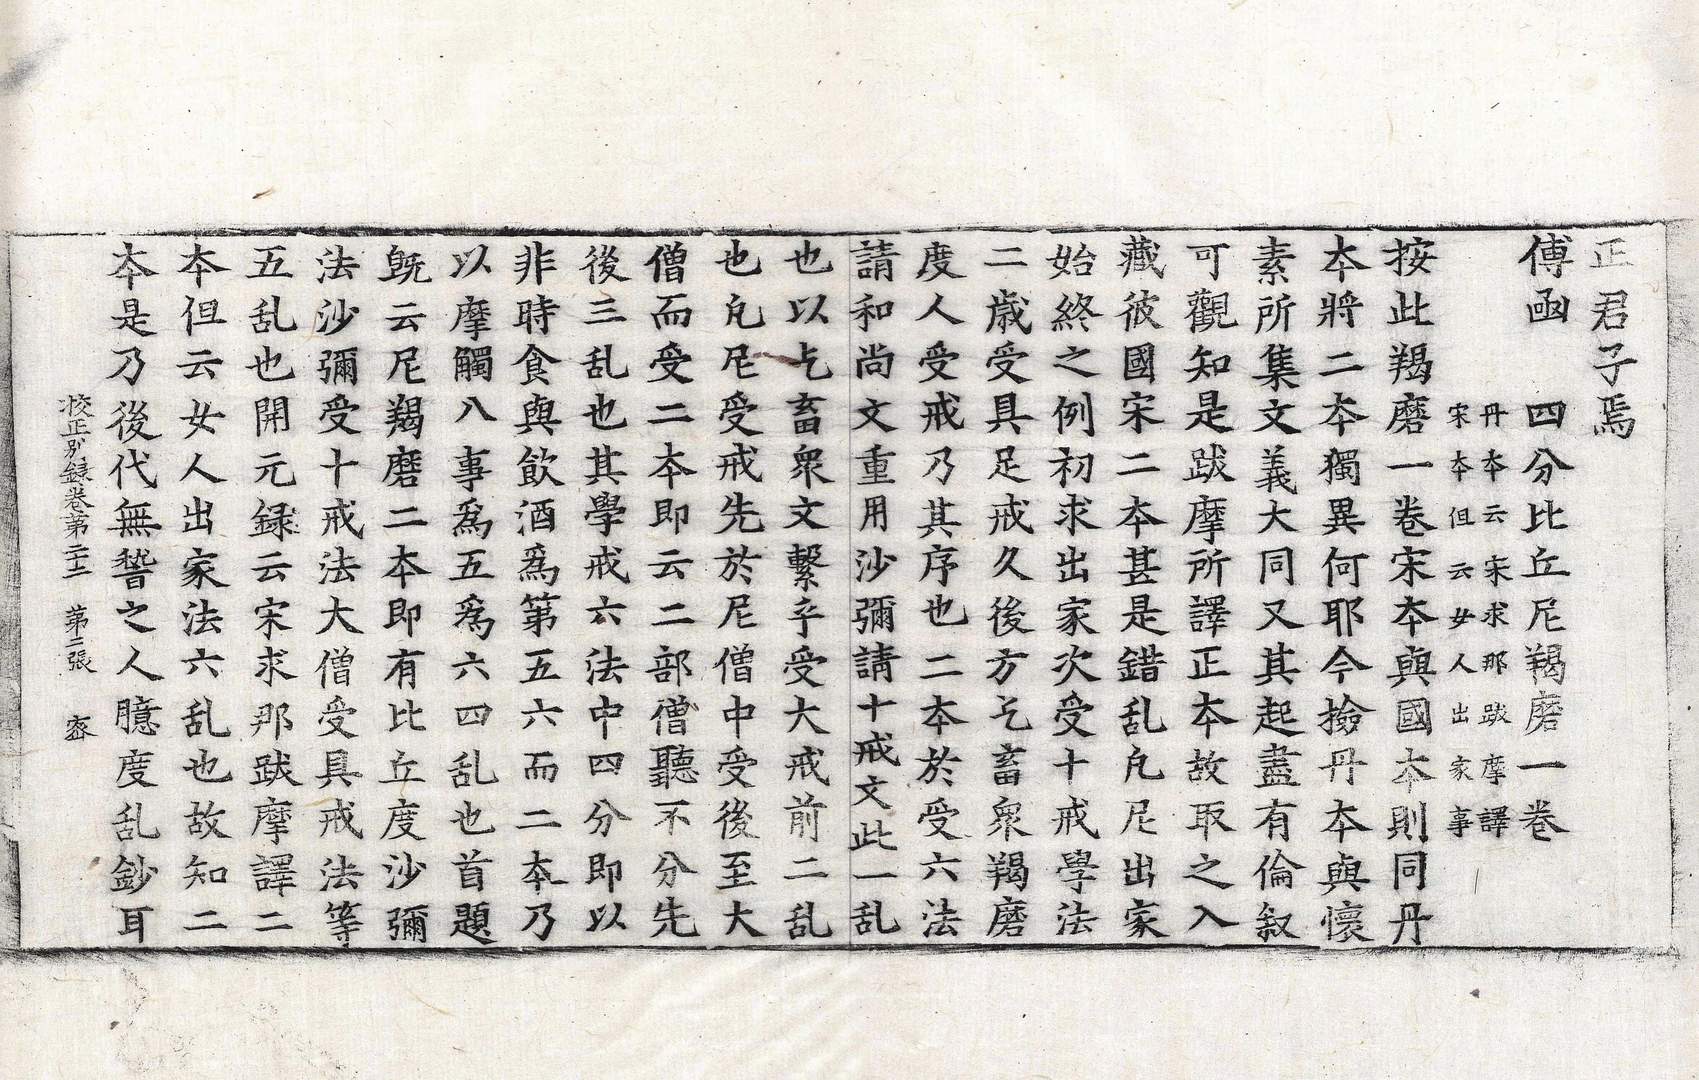 正君子焉
傅函　四分比丘尼羯磨一卷
丹本云宋求那跋摩譯
宋本但云女人出家事
按此羯磨一卷宋本與國本則同丹
本將二本獨異何耶今撿丹本與懷
素所集文義大同又其起盡有倫叙
可觀知是跋摩所譯正本故取之入
藏彼國宋二本甚是錯乱凢尼出家
始終之例初求出家次受十戒學法
二歳受具足戒久後方乞畜衆羯磨
度人受戒乃其序也二本於受六法
請和尚文重用沙彌請十戒文此一乱
也以乞畜衆文繫乎受大戒前二乱
也凢尼受戒先於尼僧中受後至大
僧而受二本即云二部僧聽不分先
後三乱也其學戒六法中四分即以
非時食與飲酒爲第五六而二本乃
以摩觸八事爲五爲六四乱也首題
旣云尼羯磨二本即有比丘度沙彌
法沙彌受十戒法大僧受具戒法等
五乱也開元録云宋求那跋摩譯二
本但云女人出家法六乱也故知二
本是乃後代無㫮之人臆度乱鈔耳
校正别録卷第二十二　第二張　密